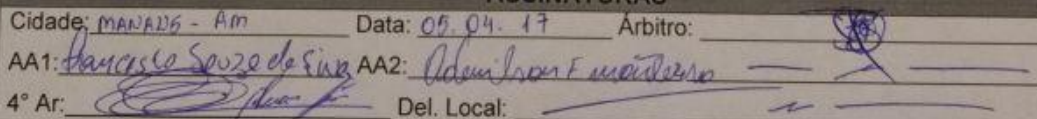 Cidade: MANAUS - Am Data: 05.04.17 Árbitro:
AA1: Francisco Souza da Silva AA2: Ademilson F
4° Ar: Del. Local: